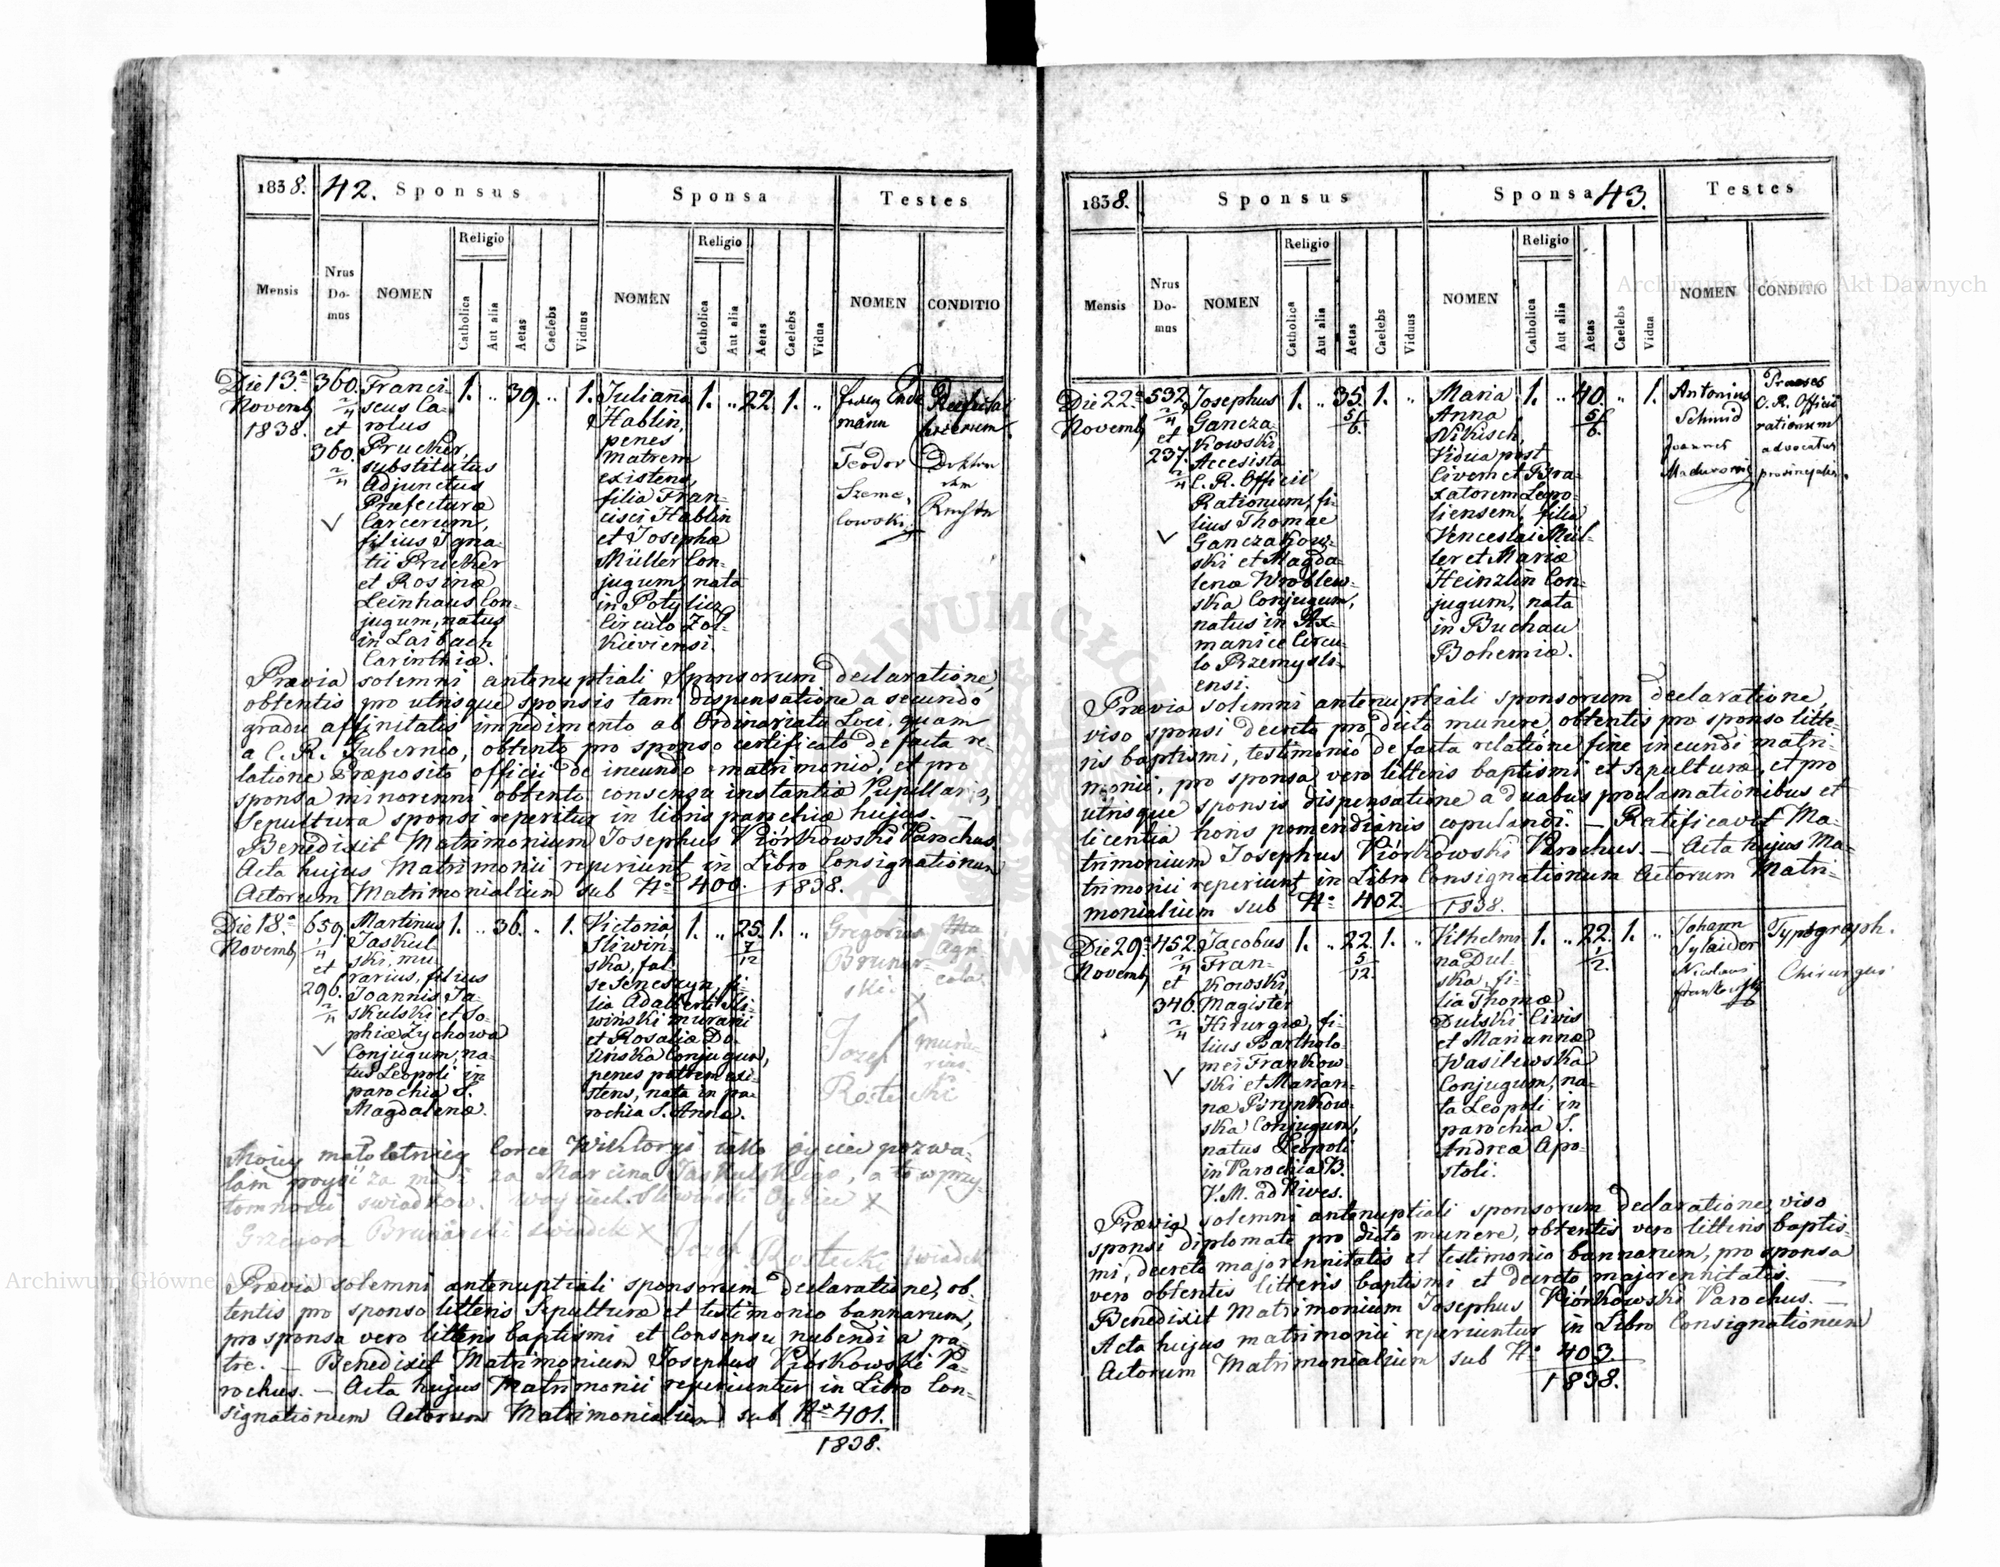 1838. 42. Sponsus Sponsa Testes
Mensis Nrus Do- mus NOMEN Religio Catholica Aut alia Aetas Caelebs Viduus NOMEN Religio Catholica Aut alia Aetas Caelebs Vidua NOMEN CONDITIO
Die 13ª
Novemb
1838.
360.
2/4
et
360.
2/4
Franci-
scus Ca-
rolus
Prucker,
substitutus
Adjunctus
Præfecturæ
Carcerum,
filius Igna-
tii Prucker
et Rosinæ
Leinhaus Con-
jugum, natus
in Laibach
Carinthiæ.
1. „ 39. „ 1.
Julianna
Hablin,
penes
matrem
existens,
filia Fran-
cisci Hablin
et Josephæ
Müller Con-
jugum, nata
in Potylicz
Circulo Zol-
kiviensi.
1. „ 22. 1. „
mann
Teodor
Szeme-
lowski
Prævia solemni antenuptiali Sponsorum declaratione,
obtentis pro utrisque sponsis tam dispensatione a secundo
gradu affinitatis impedimento ab Ordinariatu Loci, quam
a C. R. Gubernio, obtento pro sponso certificato de facta re-
latione Præposito officii de ineundo matrimonio, et pro
sponsa minorenni obtento consensu instantiæ Pupillaris,
Sepultura sponsi reperitur in libris parochiæ hujus. —
Benedixit Matrimonium Josephus Piórkowski Parochus.
Acta hujus Matrimonii reperiunt in Libro Consignationum
Actorum Matrimonialium sub No 400. 1838.
Die 18.ª
Novemb
659.
1/4
et
296.
2/4
Martinus
Jaskul-
ski, mu-
rarius, filius
Joannis Ja-
skulski et So-
phiæ Zychowa
Conjugum, na-
tus Leopoli in
parochia S.
Magdalenæ.
1. „ 36. „ 1.
Victoria
Sliwin-
ska,
filia Adalberti Sli-
wiński murarii
et Rosaliæ Do-
lińska Conjugum,
penes patrem exi-
stens, nata in pa-
rochia S. Annæ.
1. „ 25. 1. „
7/12
Gregorius
Brunar-
ski.
X
Józef
Rostecki
agri-
cola.
mura-
rius.
Mojey małoletniey Corce Wiktoryi jako oyciec pozwa-
lam poyść za mąż za Marcina Jaskulskiego, a to w przy-
tomności swiadkow. Woyciech Sliwinski Oyciec X
Grzegorz Brunarski swiadek X Jozef Rostecki swiadek
Prævia solemni antenuptiali sponsorum declaratione, ob-
tentis pro sponso litteris Sepulturæ et testimonio bannorum,
pro sponsa vero litteris baptismi et Consensu nubendi a pa-
tre. — Benedixit Matrimonium Josephus Piórkowski Pa-
rochus. — Acta hujus Matrimonii reperiuntur in Libro Con-
signationum Actorum Matrimonialium sub No 401.
1838.
1838. Sponsus Sponsa 43. Testes
Mensis Nrus Do- mus NOMEN Religio Catholica Aut alia Aetas Caelebs Viduus NOMEN Religio Catholica Aut alia Aetas Caelebs Vidua NOMEN CONDITIO
Die 22ª
Novemb
532.
2/4
et
237.
2/4
Josephus
Gancza-
kowski
Accesista
C. R. Officii
Rationum, fi-
lius Thomæ
Ganczakow-
ski et Magda-
lenæ Wroblew-
ska Conjugum,
natus in Ax-
manice Circu-
lo Przemysli-
ensi.
1. „ 35. 1. „
5/6.
Maria
Anna
Nikisch,
Vidua post
Civem et Bra-
xatorem Leopo-
liensem, filia
Venceslai Mül-
ler et Mariæ
Heinzlin Con-
jugum, nata
in Buchau
Bohemiæ.
1. „ 40. „ 1.
5/6.
Antonius
Schmid
Joannes
Præses
C. R. Officii
rationum
advocatus
provincialis.
Prævia solemni antenuptiali sponsorum declaratione,
viso sponsi decreto pro dicto munere, obtentis pro sponso litte-
ris baptismi, testimonio de facta relatione fine ineundi matri-
monii, pro sponsa vero litteris baptismi et sepulturæ, et pro
utrisque sponsis dispensatione a duabus proclamationibus et
licentia horis pomeridianis copulandi. — Ratificavit Ma-
trimonium Josephus Piórkowski Parochus. — Acta hujus Ma-
trimonii reperiunt in Libro Consignationum Actorum Matri-
monialium sub No 402. 1838.
Die 29.ª
Novemb
452.
2/4
et
346.
2/4
Jacobus
Fran-
kowski,
Magister
Hirurgiæ, fi-
lius Bartholo-
mei Frankow-
ski et Marian-
næ Brynkow-
ska Conjugum,
natus Leopoli
in Parochia B.
V. M. ad Nives.
1. „ 22. 1. „
5/12.
Vilhelmi-
na Dul-
ska, fi-
lia Thomæ
Dulski Civis
et Mariannæ
Wasilewska
Conjugum, na-
ta Leopoli in
parochia S.
Andreæ Apo-
stoli.
1. „ 22. 1. „
1/2.
Johann
Nicolaus
Frankowski
Typograph.
Chirurgus
Prævia solemni antenuptiali sponsorum declaratione, viso
sponsi diplomate pro dicto munere, obtentis vero litteris baptis-
mi, decreto majorennitatis et testimonio bannorum, pro sponsa
vero obtentis litteris baptismi et decreto majorennitatis. —
Benedixit Matrimonium Josephus Piórkowski Parochus. —
Acta hujus matrimonii reperiuntur in Libro Consignationum
Actorum Matrimonialium sub No 403.
1838.
Archiwum Główne Akt Dawnych
Archiwum Główne Akt Dawnych